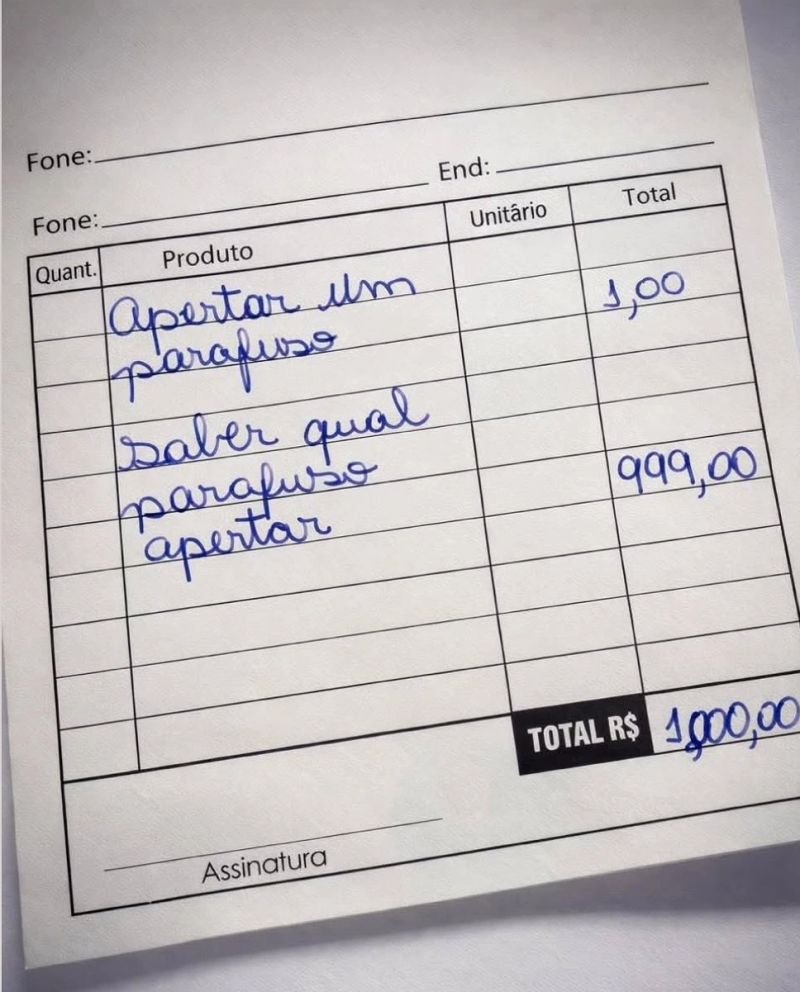 Fone:
End:
Fone:
Quant. Produto Unitário Total
Apertar um
1,00
parafuso
Saber qual
parafuso 999,00
apertar
TOTAL R$ 1,000,00
Assinatura